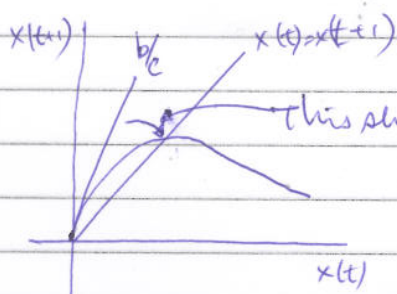 x(t+1)
b/c
x(t)=x(t+1)
This
x(t)